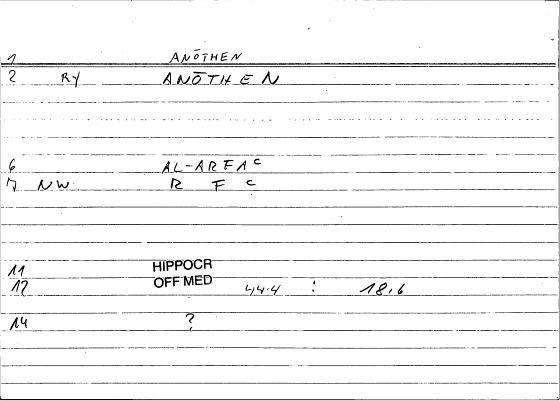 1 ANŌTHEN
2 RY ANŌTHEN
6 AL-ARFAᶜ
7 NW R F ᶜ
11 HIPPOCR
12 OFF MED 44.4 : 18.6
14 ?